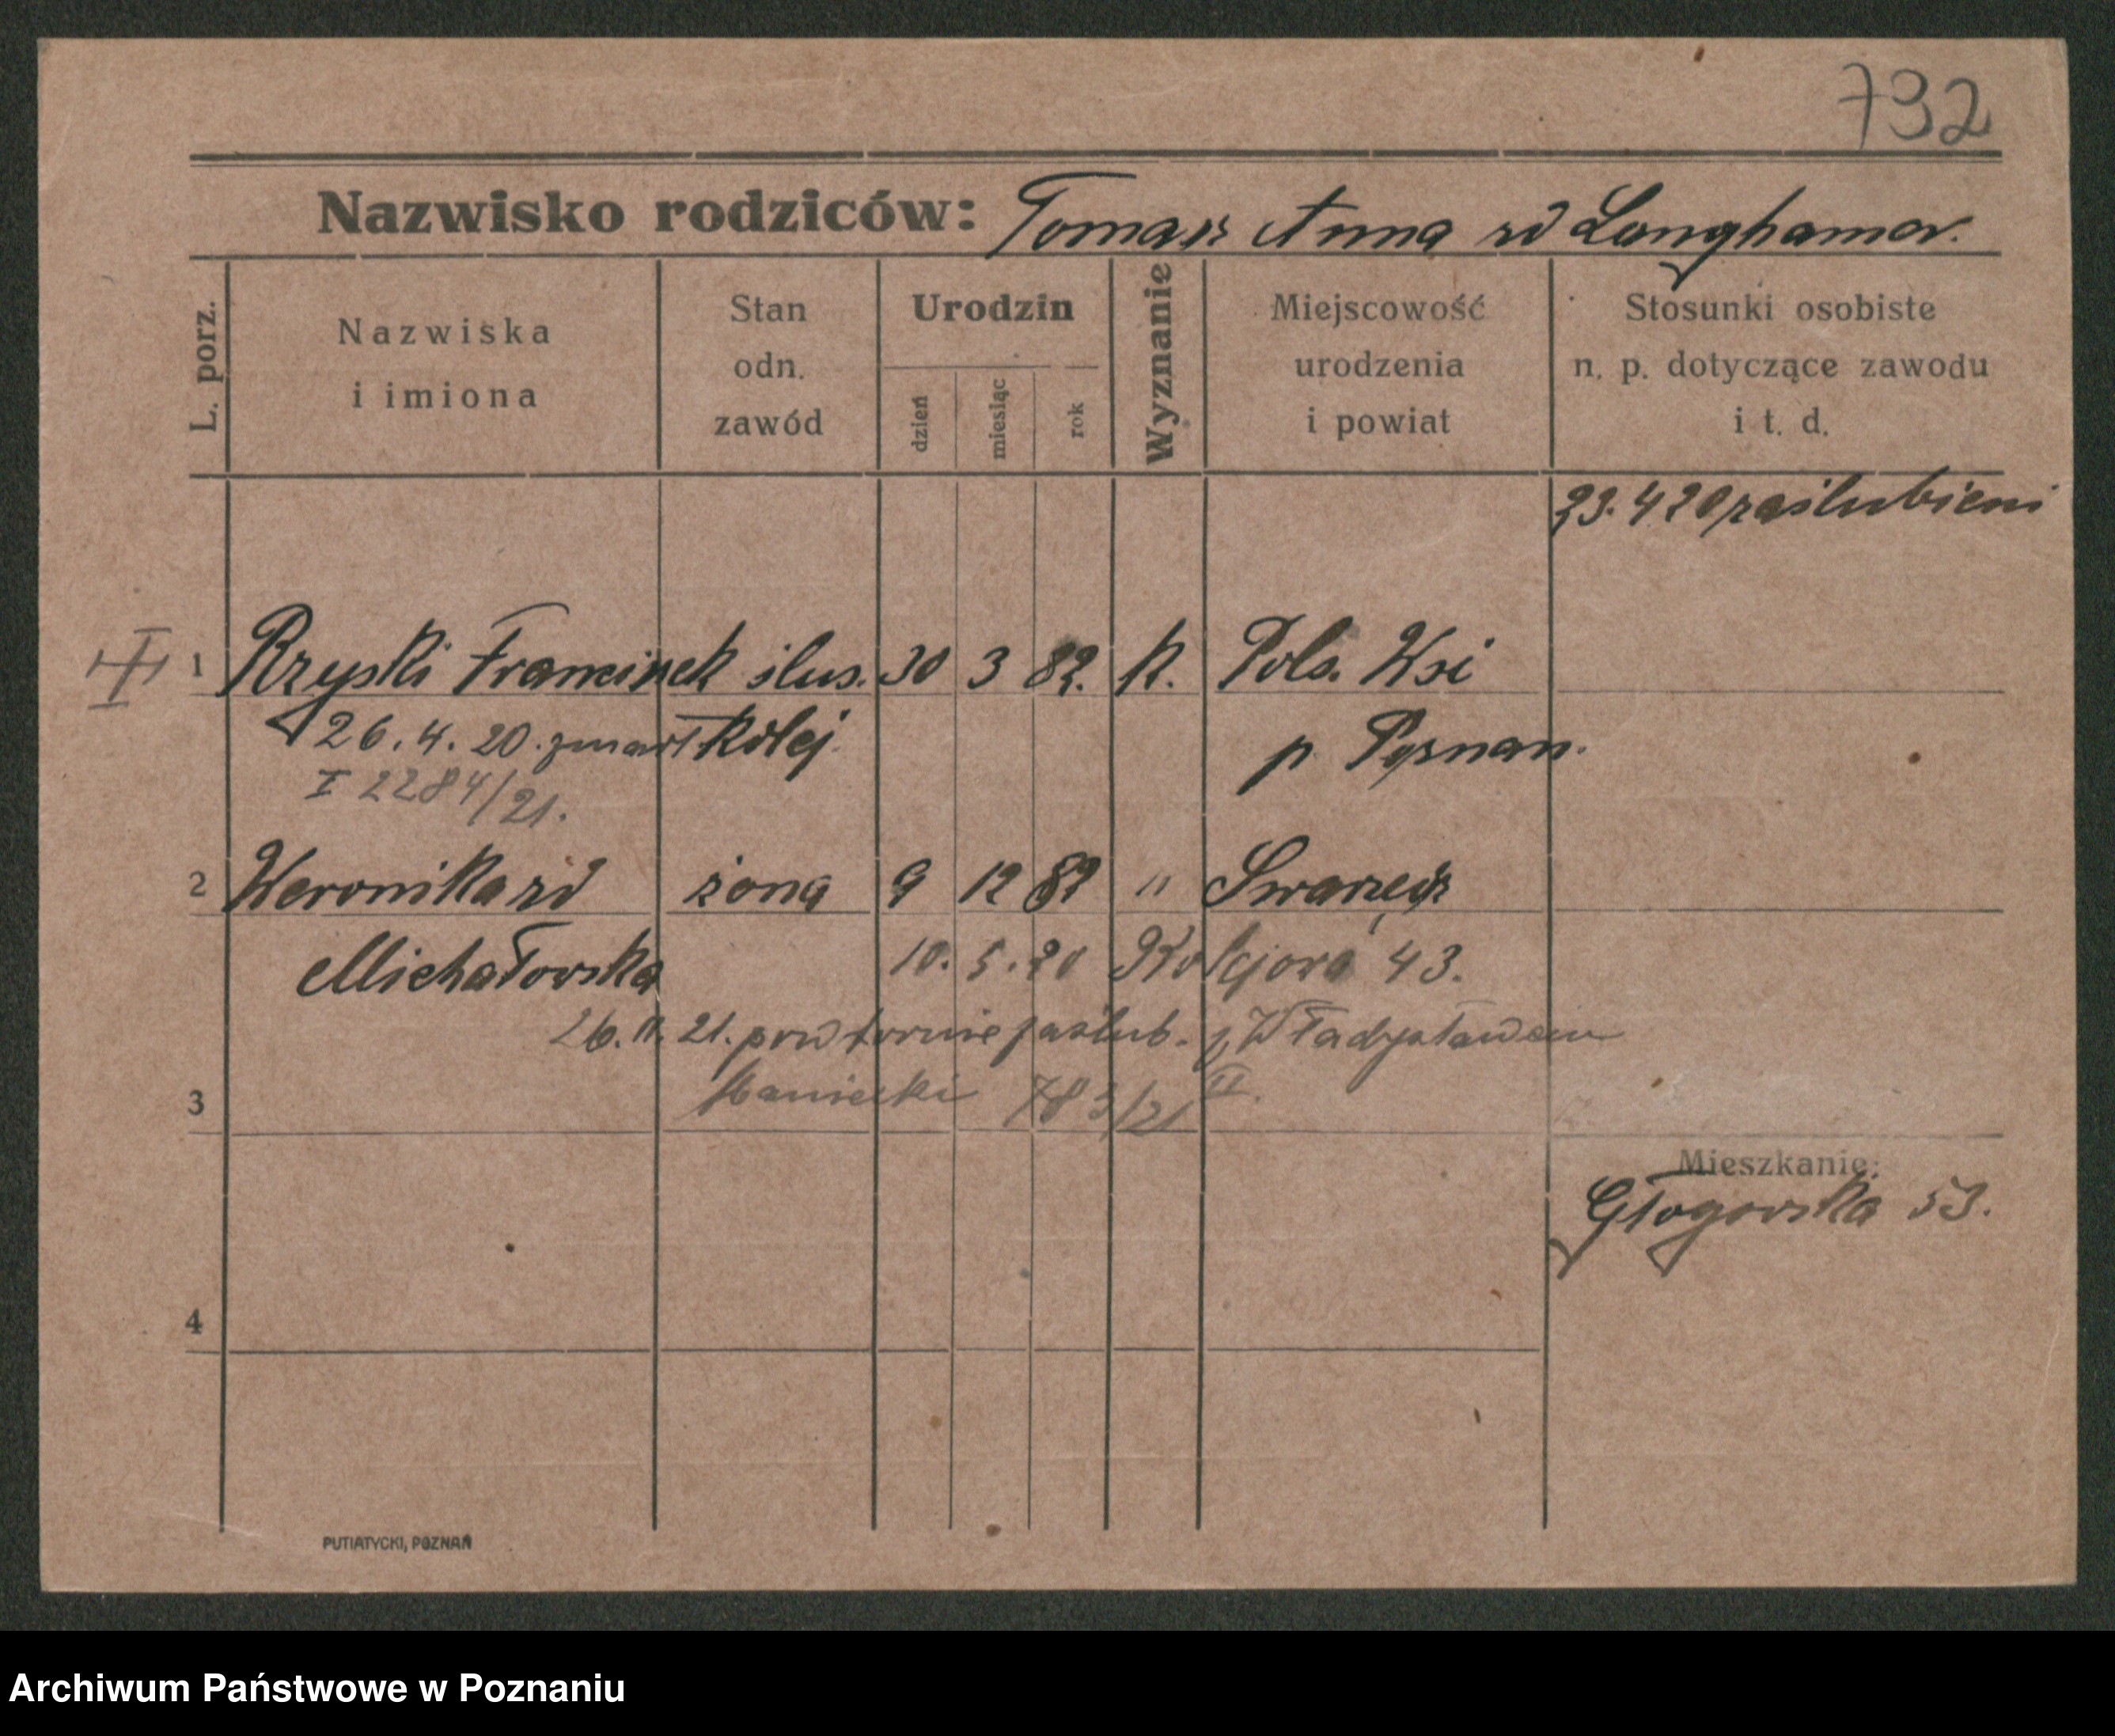 732
Nazwisko rodziców: Tomasz Anna zd Langhamer.
L. porz.
Nazwiska
i imiona
Stan
odn.
zawód
Urodzin
dzień
miesiąc
rok
Wyznanie
Miejscowość
urodzenia
i powiat
Stosunki osobiste
n. p. dotyczące zawodu
i t. d.
23. 4 20 zaślubieni
1 Rzyski Franciszek ślus. 30 3 82. K. Pols. Wsi
26. 4. 20. zmarł kolej. p. Poznań.
I 2284/21.
2 Weronika zd żona 9 12 82 " Swarzędz
Michałowska 10. 5. 20 Kolejowa 43.
26. 11. 21. powtornie zaślub. z Władysławem
3 783/21 II.
Mieszkanie:
Głogowska 53.
4
PUTIATYCKI, POZNAŃ
Archiwum Państwowe w Poznaniu